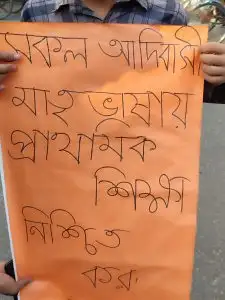 সকল আদিবাসী
মাতৃ ভাষায়
প্রাথমিক
শিক্ষা
নিশ্চিত
কর